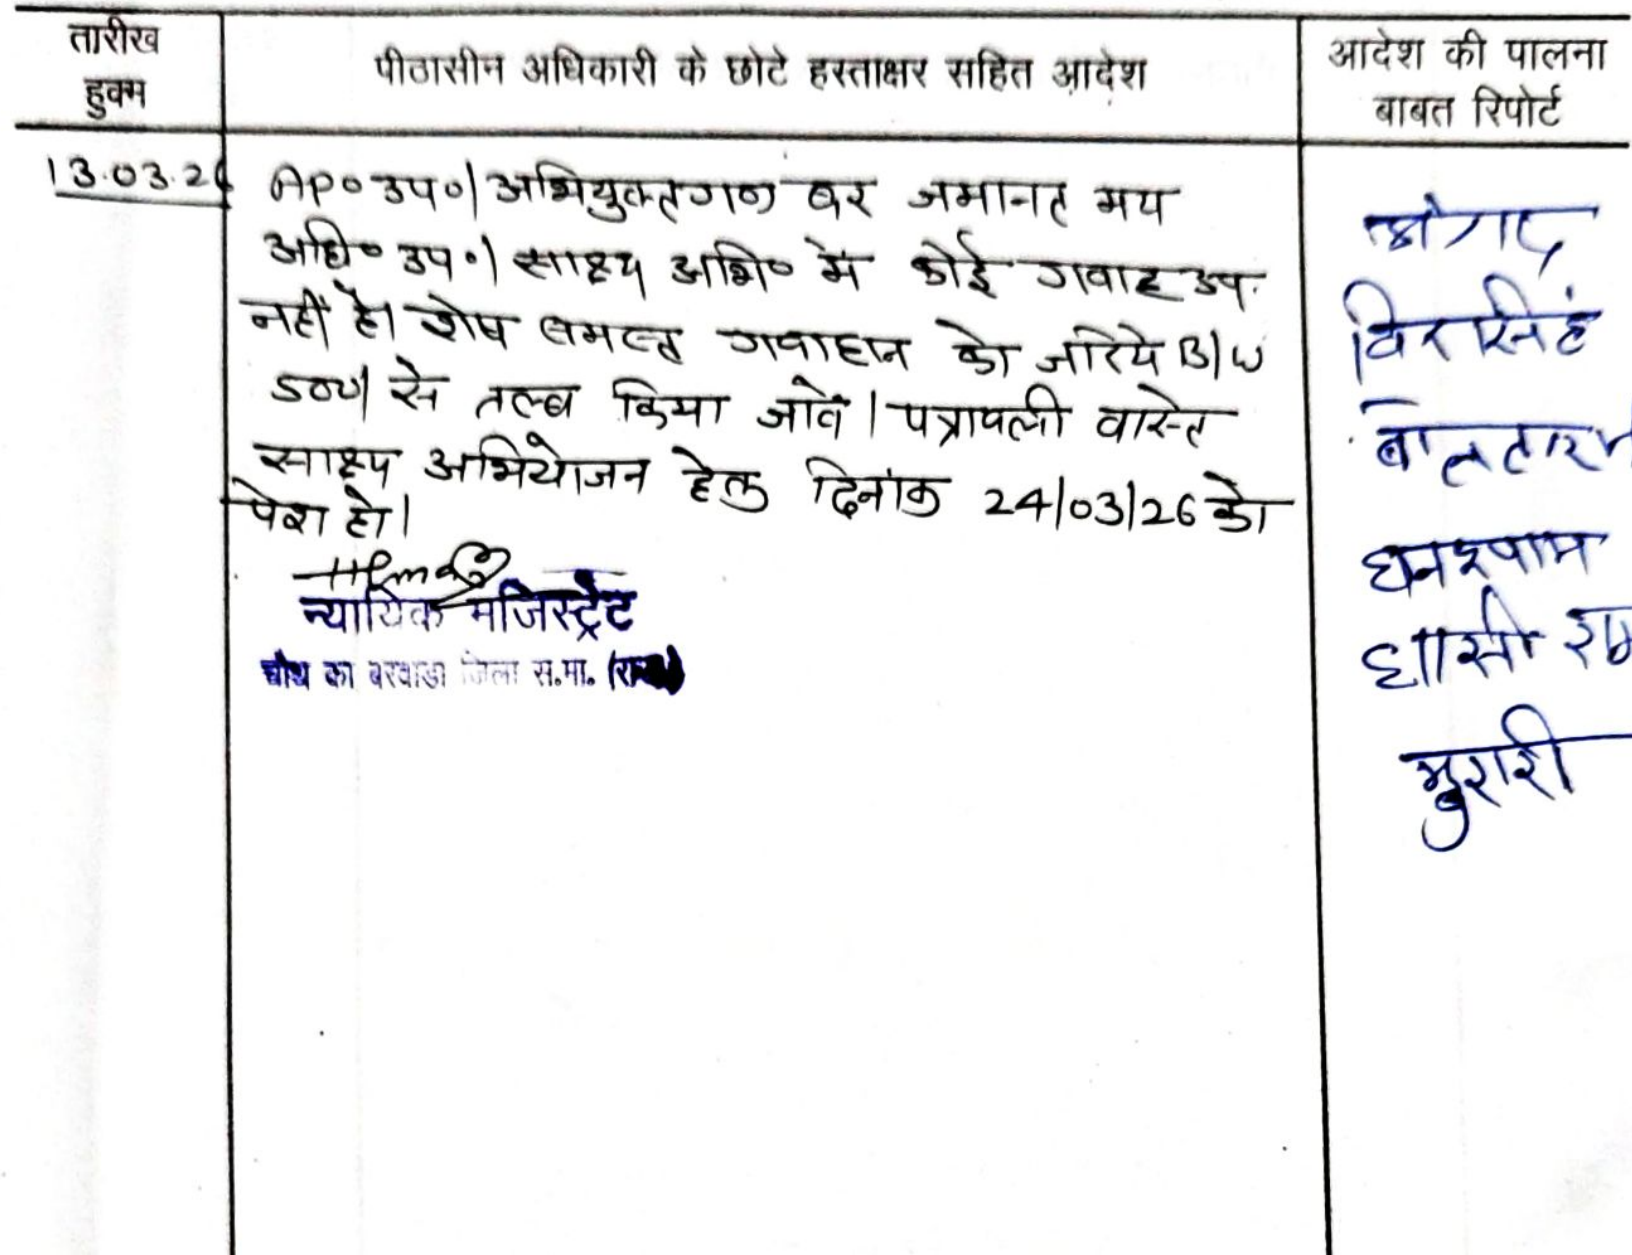 तारीख
हुक्म
पीठासीन अधिकारी के छोटे हस्ताक्षर सहित आदेश
आदेश की पालना
बाबत रिपोर्ट
13.03.26
AP० उप०। अभियुक्तगण बर जमानत मय
अधि० उप०। साक्ष्य अभि० में कोई गवाह उप.
नहीं है। शेष समस्त गवाहान को जरिये B/W
से तल्ब किया जावे। पत्रावली वास्ते
साक्ष्य अभियोजन हेतु दिनांक 24/03/26 को
पेश हो।
न्यायिक मजिस्ट्रेट
चौथ का बरवाडा जिला स.मा. (राज.)
विरसिहं
घनश्याम
घासी
मुरारी